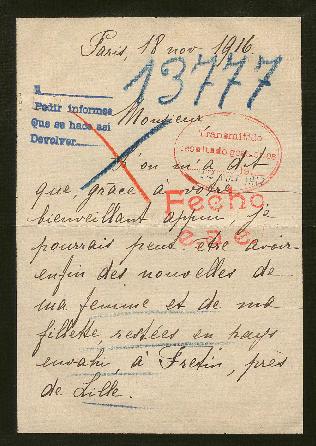 Paris, 18 nov. 1916.
13777
A
Pedir informes
Que se hace así
Devolver
Monsieur
Transmitido
resultado gestiones
L'on m'a dit
que grâce à votre
Fecho
bienveillant appui, je
pourrais peut être avoir
enfin des nouvelles de
ma femme et de ma
fillette, restées en pays
envahi, à Fretin, près
de Lille.